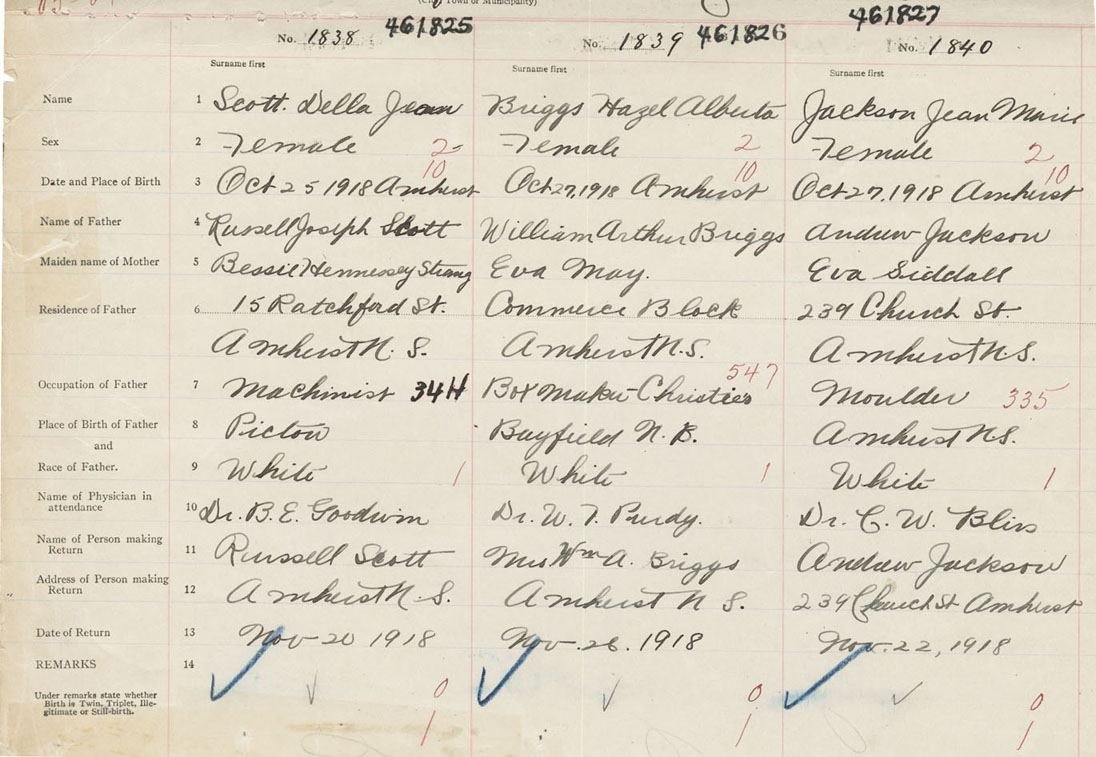 (City, Town or Municipality)
461825 461826 461827
No. 1838 No. 1839 No. 1840
Surname first Surname first Surname first
Name 1 Scott. Della Jean Briggs Hazel Alberta Jackson Jean Marie
Sex 2 Female 2 Female 2 Female 2
10 10 10
Date and Place of Birth 3 Oct 25 1918 Amherst Oct 27, 1918 Amherst Oct 27, 1918 Amherst
Name of Father 4 Russell Joseph Scott William Arthur Briggs Andrew Jackson
Maiden name of Mother 5 Bessie Hennessey Strang Eva May. Eva Siddall
Residence of Father 6 15 Ratchford St. Commerce Block 239 Church St.
Amherst N. S. Amherst N.S. Amherst N.S.
Occupation of Father 7 Machinist 34H Box Maker Christie's 547 Moulder 335
Place of Birth of Father 8 Pictou Bayfield N. B. Amherst N.S.
and
Race of Father. 9 White 1 White 1 White 1
Name of Physician in
attendance 10 Dr. B. E. Goodwin Dr. W. T. Purdy. Dr. C. W. Bliss
Name of Person making
Return 11 Russell Scott Mrs Wm A. Briggs Andrew Jackson
Address of Person making
Return 12 Amherst N. S. Amherst N S. 239 Church St Amherst
Date of Return 13 Nov 20 1918 Nov. 26. 1918 Nov. 22, 1918
REMARKS 14
Under remarks state whether
Birth is Twin, Triplet, Ille-
gitimate or Still-birth.
0 0 0
1 1 1